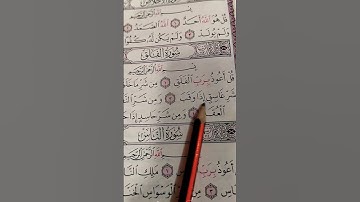 قُلْ هُوَ اللَّهُ أَحَدٌ ۝ اللَّهُ الصَّمَدُ
وَلَمْ يُولَدْ ۝ وَلَمْ يَكُن لَّهُ كُفُوًا
سُورَةُ الْفَلَقِ
بِسْمِ اللَّهِ الرَّحْمَٰنِ الرَّحِيمِ
قُلْ أَعُوذُ بِرَبِّ الْفَلَقِ ۝ مِن شَرِّ مَا خَلَقَ
شَرِّ غَاسِقٍ إِذَا وَقَبَ ۝ وَمِن شَرِّ
الْعُقَدِ ۝ وَمِن شَرِّ حَاسِدٍ إِذَا
سُورَةُ النَّاسِ
اللَّهِ الرَّحْمَٰنِ الرَّحِيمِ
أَعُوذُ بِرَبِّ ۝ مَلِكِ
۝ مِن شَرِّ الْوَسْوَاسِ